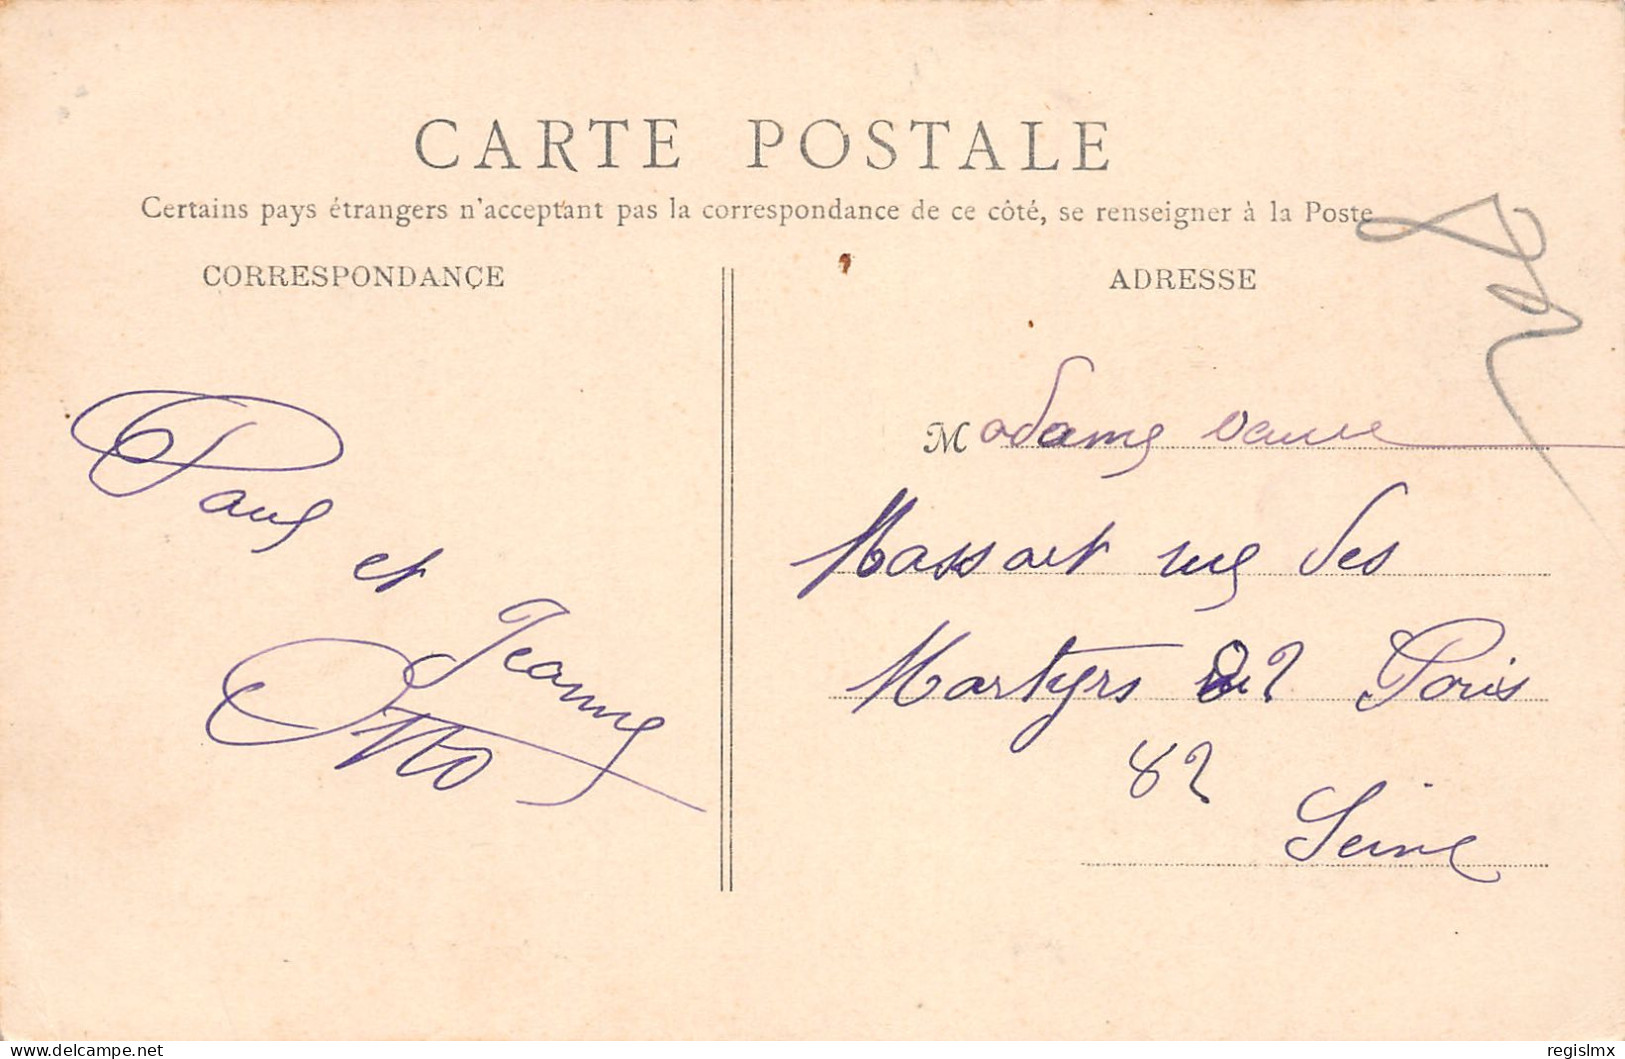 CARTE POSTALE
Certains pays étrangers n'acceptant pas la correspondance de ce côté, se renseigner à la Poste
CORRESPONDANCE
Paul
et
Jeanne
Otto
ADRESSE
Madame Veuve
Massart rue des
Martyrs 82 Paris
82
Seine
www.delcampe.net
regislmx